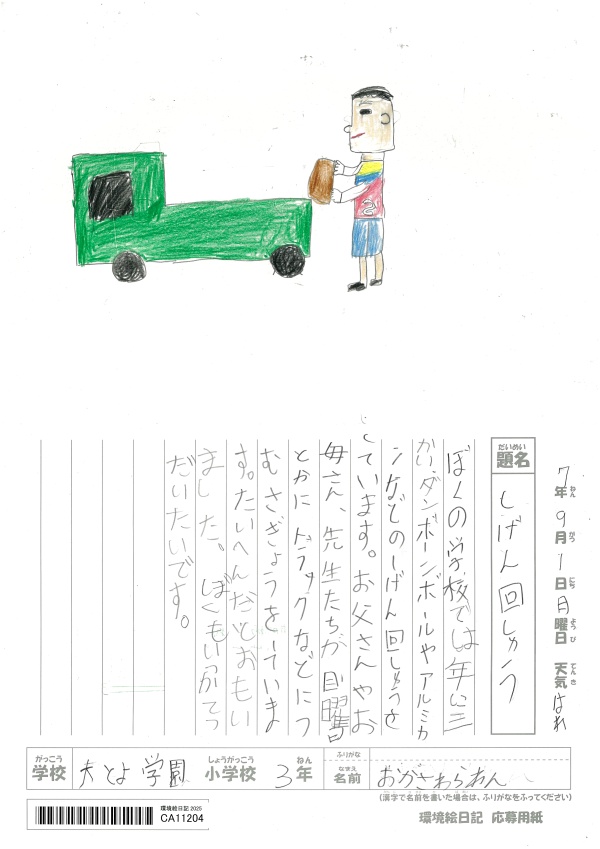 7年9月1日月曜日 天気はれ
ねん がつ にち ようび てんき
だいめい
題名
しげん回しゅう
ぼくの学校では年に三
かい、ダンボーンボールやアルミカ
ンなどのしげん回しゅうを
しています。お父さんやお
母さん、先生たちが日曜日
とかにトラックなどにつ
むさぎょうをしていま
す。たいへんだとおもい
ました。ぼくもいつかてつ
だいたいです。
がっこう
学校 大とよ学園
しょうがっこう
小学校
ねん
3年
ふりがな
なまえ
名前 おがさわられん
(漢字で名前を書いた場合は、ふりがなをふってください)
環境絵日記 2025
CA11204
環境絵日記 応募用紙